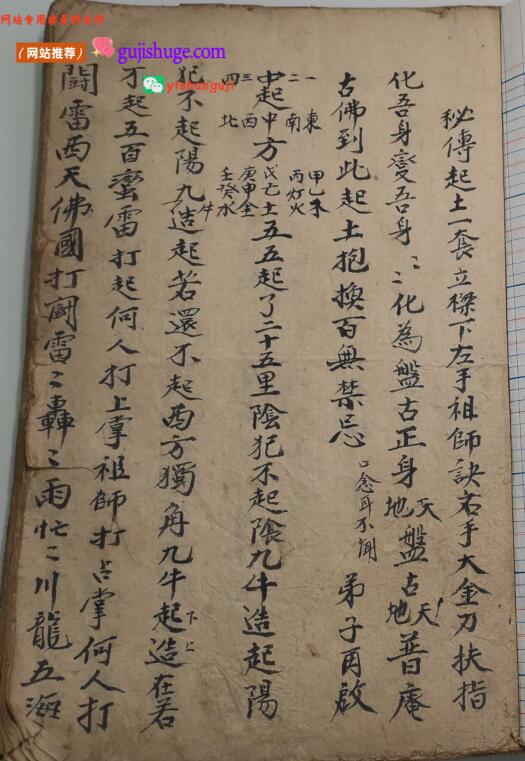 网站专用
（网站推荐） gujishuge.com
yishanguji
秘傳起土一套立樑下左手祖師訣右手大金刀扶指
化吾身變吾身〻化為盤古正身天地盤古天地普庵
古佛到此起土抱換百無禁忌口念耳不聞弟子再啟
一東甲乙木二南丙灯火三西庚申金四北壬癸水
中起中方戊己土五五起了二十五里陰犯不起陰九牛造起陽
犯不起陽九牛造起若還不起西方獨角九牛起上下造在若
才起五百蛮雷打起何人打上掌祖師打占掌何人打
鬪雷西天佛國打鬪雷〻轟〻雨忙〻川龍五海